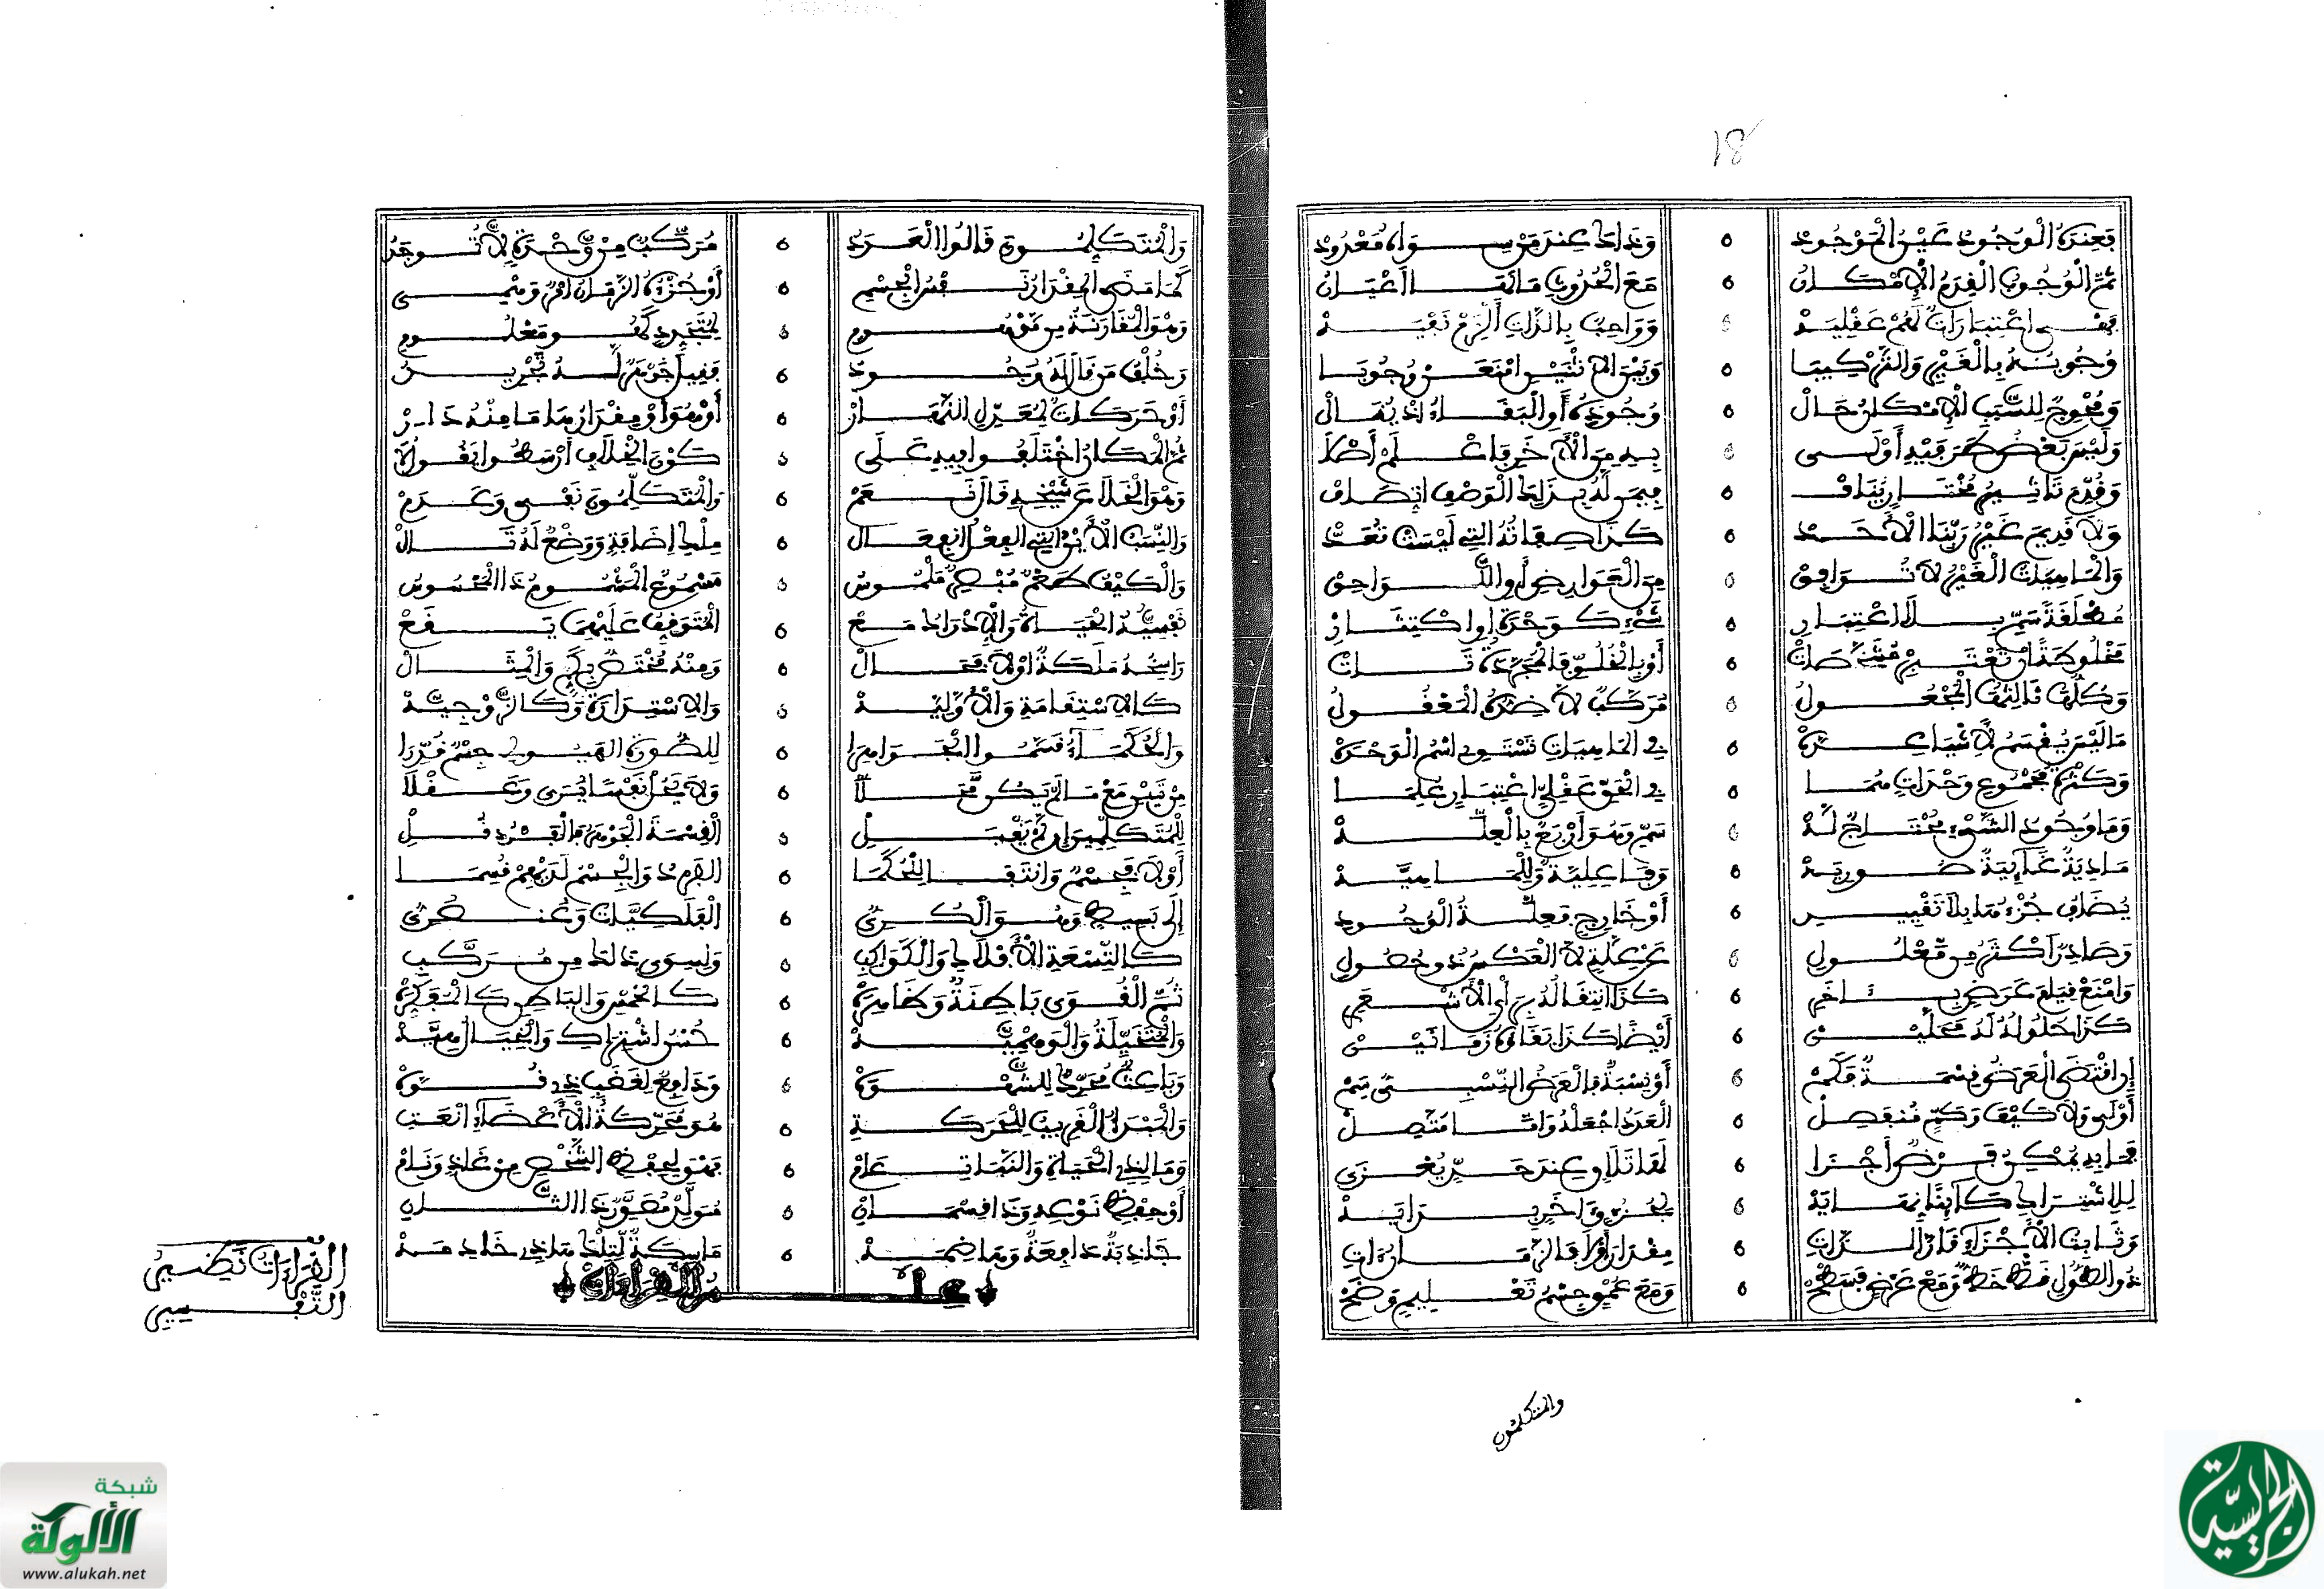 18
فعنده الوجود عين الموجود ٥ وذاك عند من سواه معدود
ثم الوجوب القدم الإمكان ٥ مع الحدوث ما لها أعيان
بهي اعتبارات لهم عقلية ٥ وواجب بالذات ألزم نفيه
وجوبه بالغير والتركيبا ٥ وبين الاثنين امنعن وجوبا
ومحوج للسبب الإمكان حال ٥ وجوده أو البقاء إذ يقال
وليس بعض طرفيه أولى ٥ به من الآخر فاعلم أصلا
وقدم تأثير مختار يناف ٥
ولا قديم غير ربنا الأحد ٥ كذا صفاته التي ليست تعد
والماهيات الغير لا توافق ٥ من العوارض أو اللواحق
مطلقة سم بلا اعتبار ٥ شيء كوحدة أو استكثار
مخلوطة إن تعتبر مشخصات ٥ أو بالخلو فالمجردة تات
وكلها ثالثها المجعول ٥ مركب لا ضده المعقول
ما ليس يقسم لأشيا عده ٥ في الماهيات تستوي اسم الوحده
وكثرة مجموع وحدات هما ٥ في الحق عقلي اعتبار علما
وما وجود الشيء يحتاج له ٥ سم وهو أربع بالعله
مادية غائية صورية ٥ وفاعلية وللماهية
يضاف جزء ما بلا تغيير ٥ أو خارج فعلة الوجود
وصادر أكثر من معلول ٥ عن علة لا العكس ذو حصول
وامنع قيام عرض بآخر ٥ كذا انتقاله برأي الأشعري
كذا حلوله له محلين ٥ أيضا كذا بقاؤه زمانين
إن اقتضى العرض قسمة فكم ٥ أو نسبة فالعرض النسبي سم
أو لا ولا كيف وكم منفصل ٥ العدد اجعله وأما متصل
فما به يمكن فرض أجزا ٥ لها تلاق عند حد يعزى
للاشتراك كائنا نهاية ٥ لجزء وآخر بداية
وثابت الأجزاء قار الذات ٥ مقدار أولا فالزمان آت
ذو الطول فقط خط ومع عرض فسطح ٥ ومع عمق جسم تعليم وضح
والمتكلمون
والمتكلمون قالوا العدد ٥ مركب من وحدة لا توجد
كما مضى المقدار نفس الجسم ٥ أو جزءه الزمان أمر وهمي
وهو المقارنة من موهوم ٥ لمتجدد معلوم
وخلف من قال له وجود ٥ ففيل جوهر له تجريد
أو حركات لمعدل النهار ٥ أو هو أو مقدارها ما منه دار
ثم المكان اختلفوا فيه على ٥ كون الخلاف أو سطحوا يقولا
وهو الخلا عن شيخه قال نعم ٥ والمتكلمون نفي وعدم
والنسب الأين متى الفعل انفعال ٥ ملك إضافة ووضع له تال
والكيف طعم مبصر ملموس ٥ مسموع المشموم ذا المحسوس
نفسية الحياة والإدراك مع ٥ المتوقف عليهما يقع
راسخه ملكة أو لا فحال ٥ ومنه مختص بكم والمثال
كالاستقامة والأولية ٥ والاستدارة وكالزوجية
والحكماء قسموا الجواهرا ٥ للصورة الهيولى جسم قررا
من تين مع ما لم يكن محلا ٥ ولا يحل نفسا يسمى وعقلا
للمتكلمين إن لم يقبل ٥ القسمة الجوهر فالفرد قل
أو لا فجسم وانتفى للحكما ٥ الفرد والجسم لديهم قسما
إلى بسيط وهو الكري ٥ الفلكيات وعنصري
كالتسعة الأفلاك والكواكب ٥ ولسوى ذلك من مركب
ثم القوى باطنة وظاهره ٥ كالخمس والباطن كالمفكره
والمتخيلة والوهمية ٥ حس اشتراك والخيال هيه
وباعث محرك للشهوة ٥ ودافع لغضب ذي قوة
والمبدأ القريب للحركة ٥ هو محركة الأعضاء انعت
وما لذي الحياة والنبات عام ٥ فهو لحفظ الشخص من غاذ ونام
أو حفظ نوعه وذا قسمان ٥ مولد مصور ذا الثان
جاذبة دافعة وهاضمة ٥ ماسكة لتلك هاذي خادمة
علم القراءات
القراءات تضمين
التفسير
شبكة
الألوكة
www.alukah.net
الجريسية